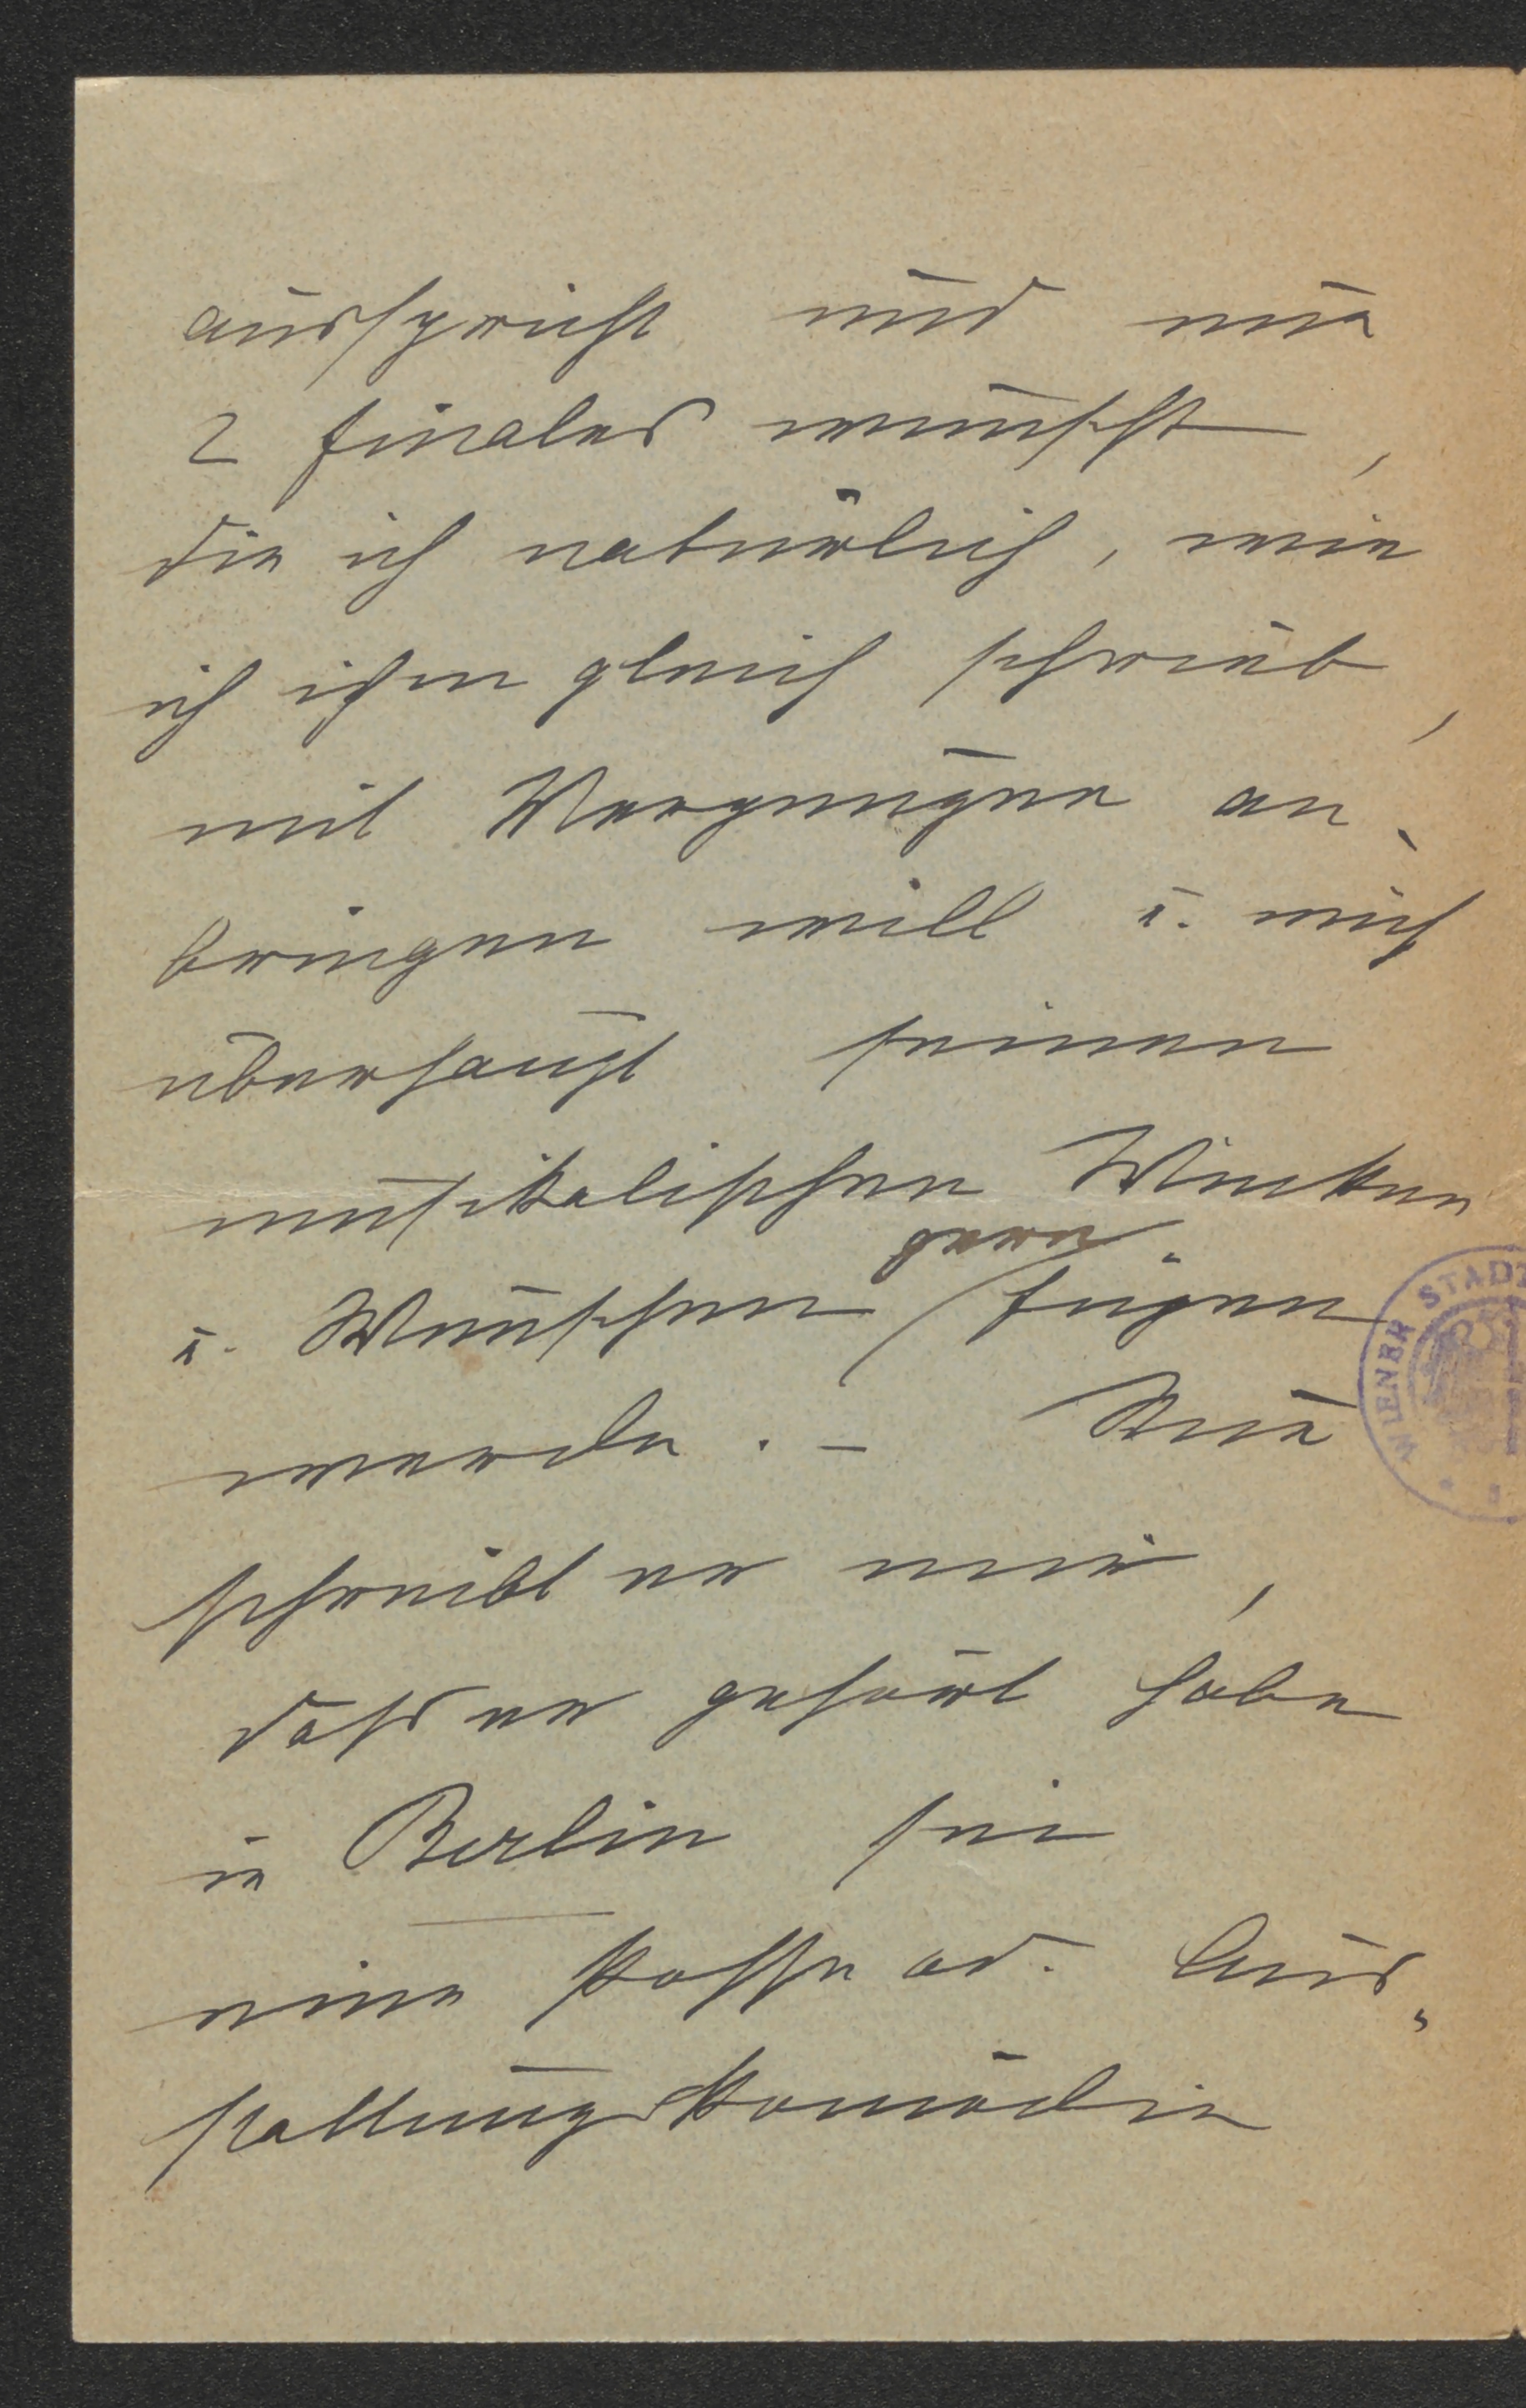 ausspricht und nur
2 Finales wünscht,
die ich natürlich, wie
ich ihm gleich schrieb,
mit Vergnügen an-
bringen will u. mich
überhaupt seinen
musikalischen Winken
gern
u. Wünschen fügen
werde. – Nur
schreibt er mir,
daß er gehört habe
in Berlin sei
eine Posse od. Aus-
stattungskomödie
WIENER STADT